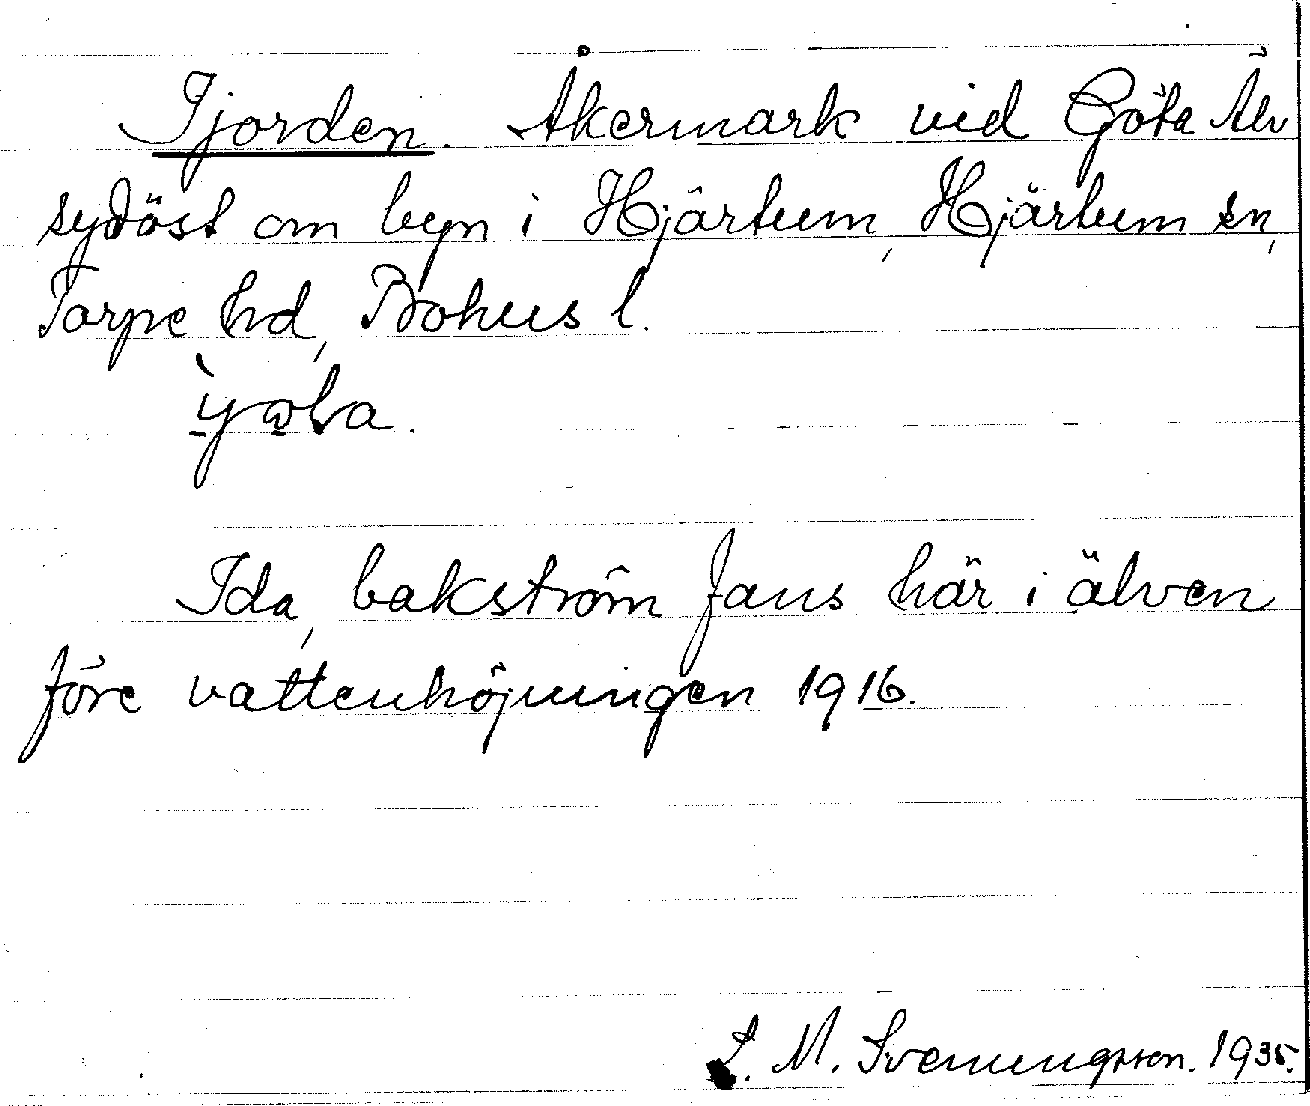 Ijorden. Åkermark vid Göta Älv
sydöst om byn i Hjärtum, Hjärtum sn,
Torpe hd, Bohus l.
Ida, bakström fans här i älven
före vattenhöjningen 1916.
L. M. Svenungsson. 1935.